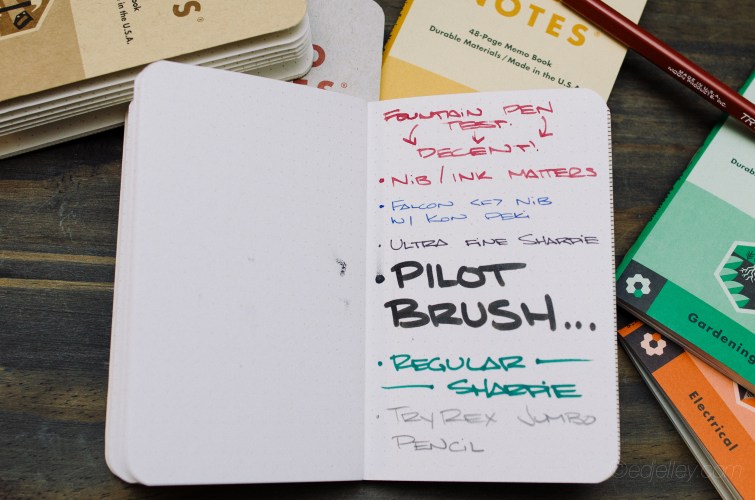 Made in the U.S.A.
NOTES®
48-Page Memo Book
Durable Materials / Made in the U.S.A.
FOUNTAIN PEN
TEST.
DECENT!
• NIB / INK MATTERS
• FALCON SEF NIB
W/ KON PEKI
• ULTRA FINE SHARPIE
• PILOT
BRUSH...
• REGULAR —
— SHARPIE
• TRYREX JUMBO
PENCIL
Gardening
Electrical
©edjelley.com